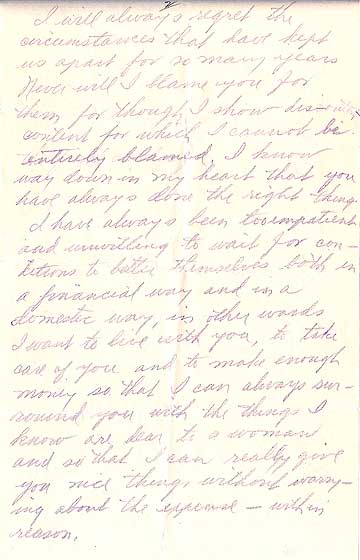 2
I will always regret the
circumstances that have kept
us apart for so many years
Never will I blame you for
them for though I show dis-
content for which I cannot be
entirely blamed, I know
way down in my heart that you
have always done the right thing.
I have always been too impatient
and unwilling to wait for con-
ditions to better themselves both in
a financial way and in a
domestic way, in other words
I want to live with you, to take
care of you and to make enough
money so that I can always sur-
round you with the things I
know are dear to a woman
and so that I can really give
you nice things without worry-
ing about the expense – within
reason.